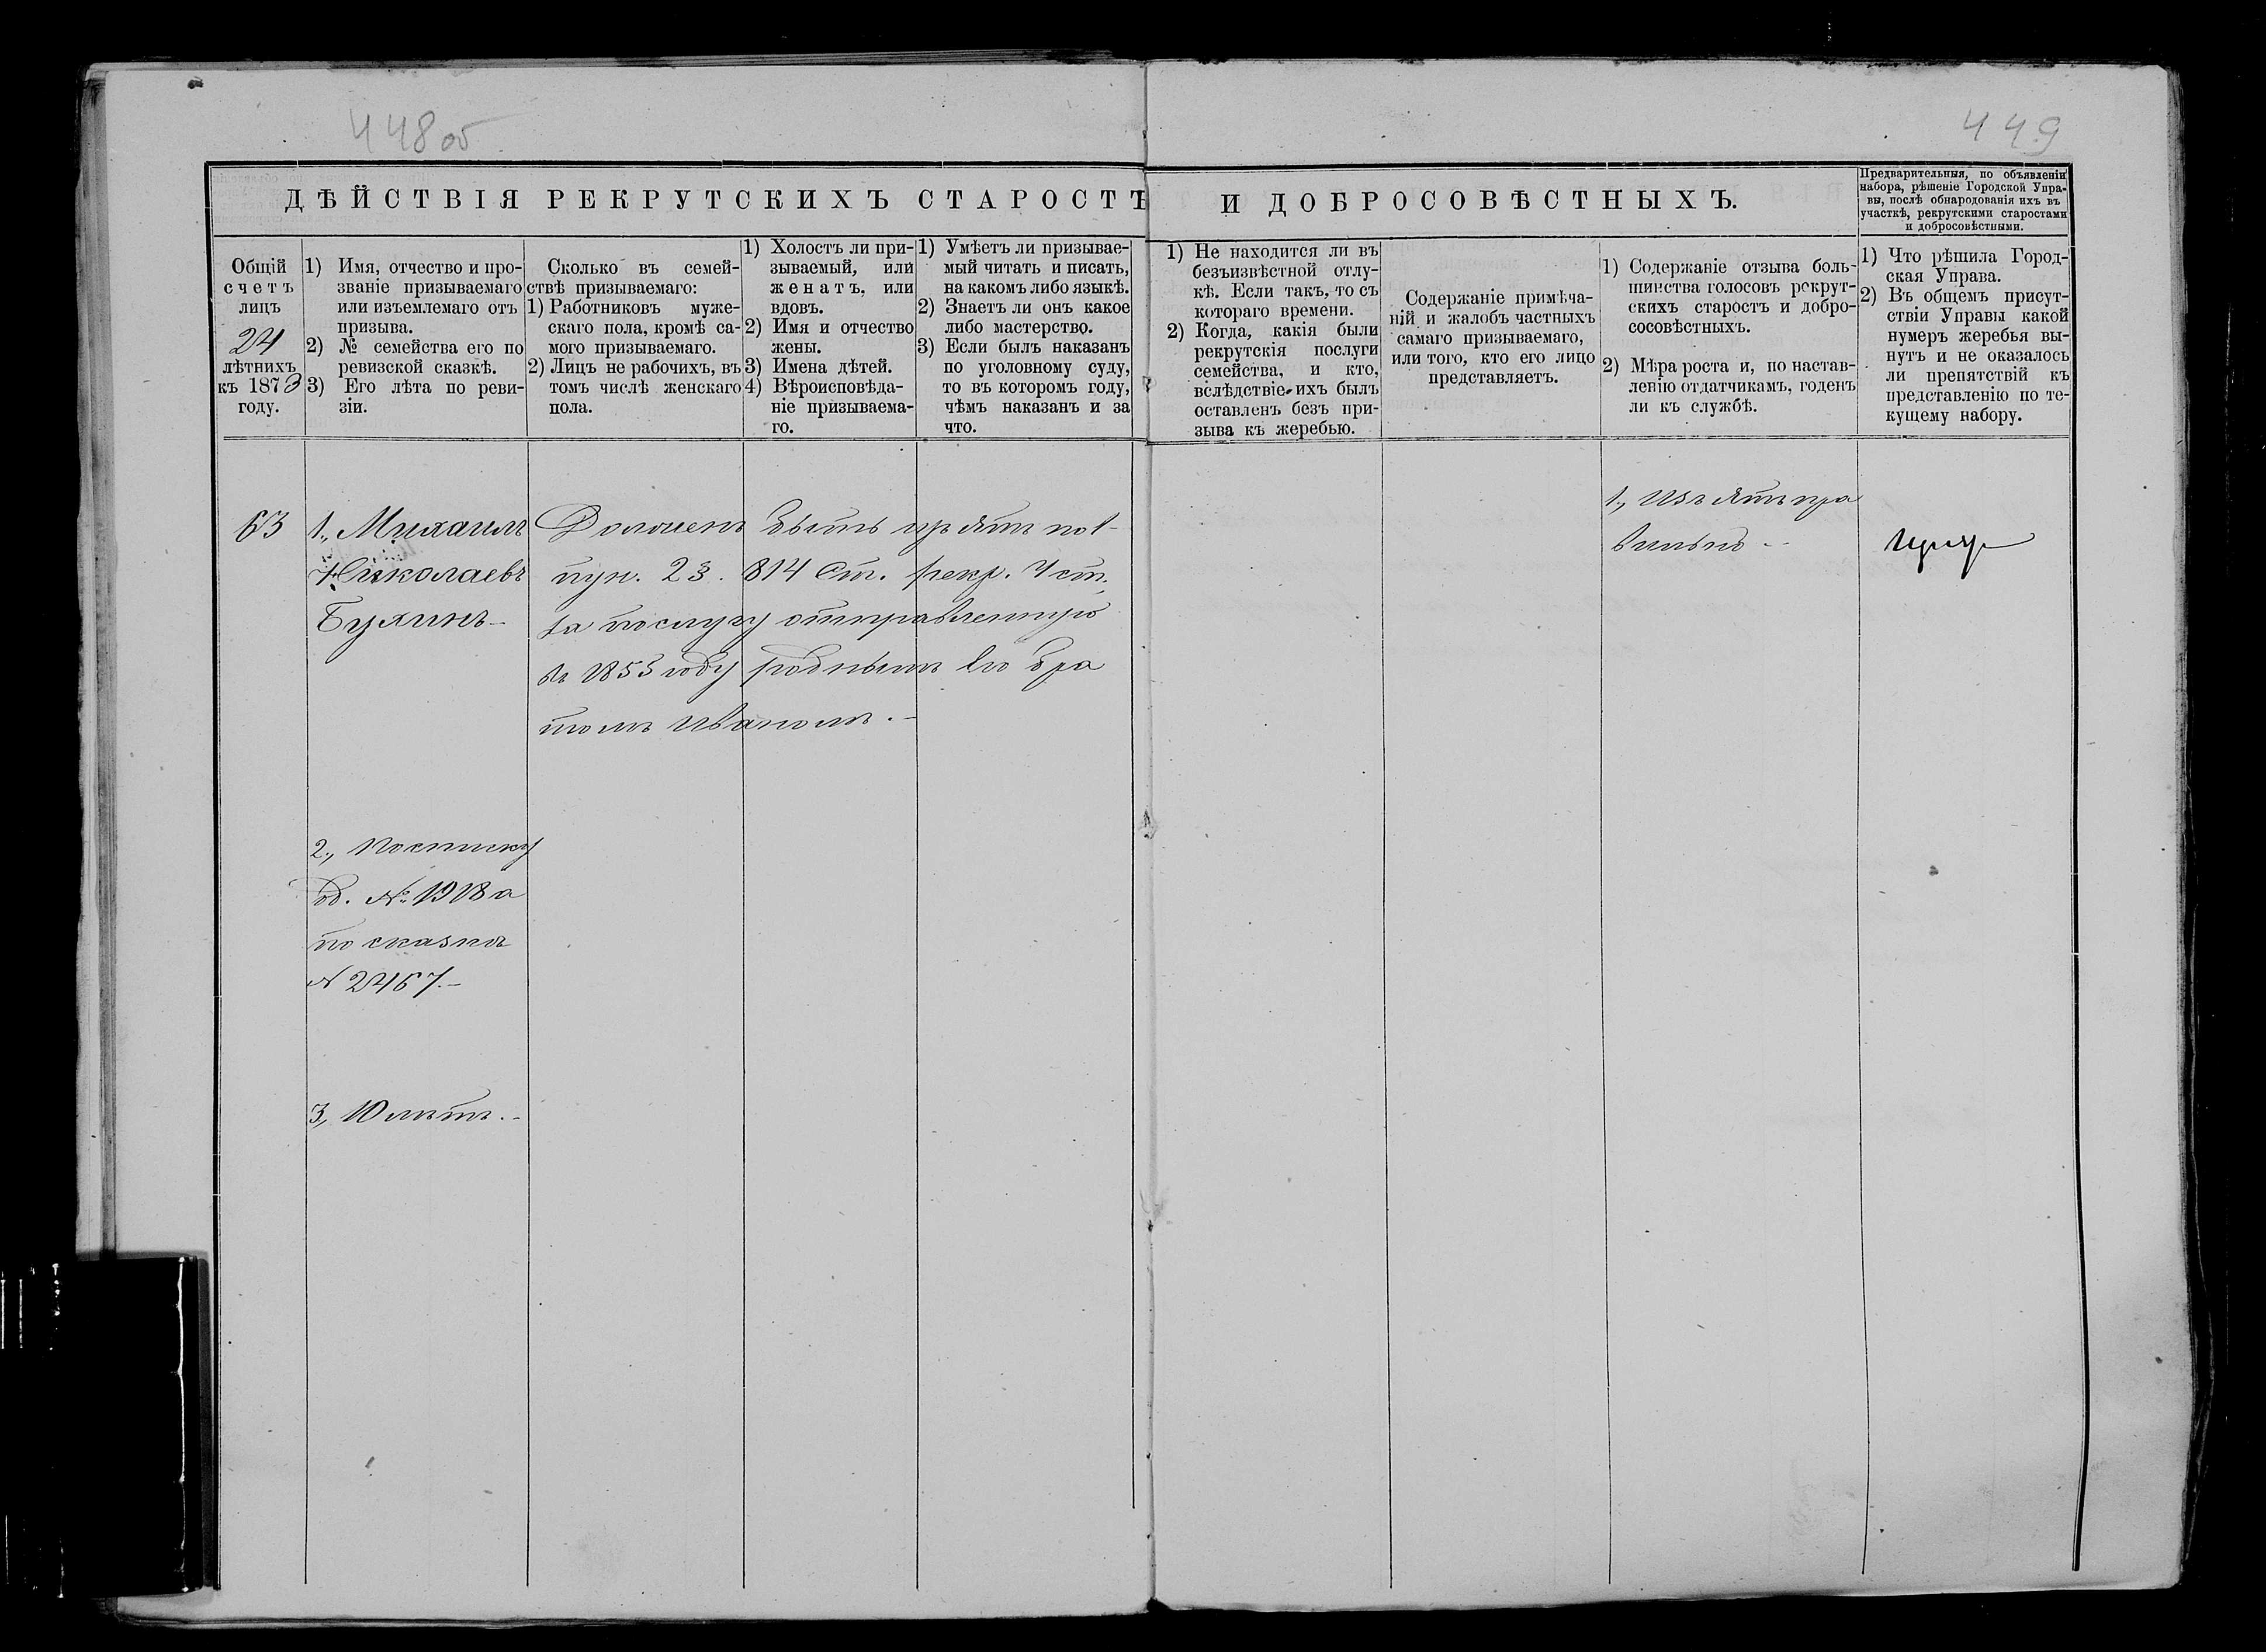 448 об
449
ДѢЙСТВІЯ РЕКРУТСКИХЪ СТАРОСТЪ
И ДОБРОСОВѢСТНЫХЪ.
Предварительныя, по объявленіи
набора, рѣшеніе Городской Упра-
вы, послѣ обнародованія ихъ въ
участкѣ, рекрутскими старостами
и добросовѣстными.
Общій
счетъ
лицъ
24
лѣтнихъ
къ 1873
году.
1) Имя, отчество и про-
званіе призываемаго
или изъемлемаго отъ
призыва.
2) № семейства его по
ревизской сказкѣ.
3) Его лѣта по реви-
зіи.
Сколько въ семей-
ствѣ призываемаго:
1) Работниковъ муже-
скаго пола, кромѣ са-
мого призываемаго.
2) Лицъ не рабочихъ, въ
томъ числѣ женскаго
пола.
1) Холостъ ли при-
зываемый, или
женатъ, или
вдовъ.
2) Имя и отчество
жены.
3) Имена дѣтей.
4) Вѣроисповѣда-
ніе призываема-
го.
1) Умѣетъ ли призывае-
мый читать и писать,
на какомъ либо языкѣ.
2) Знаетъ ли онъ какое
либо мастерство.
3) Если былъ наказанъ
по уголовному суду,
то въ которомъ году,
чѣмъ наказанъ и за
что.
1) Не находится ли въ
безъизвѣстной отлу-
кѣ. Если такъ, то съ
котораго времени.
2) Когда, какія были
рекрутскія послуги
семейства, и кто,
вслѣдствіе ихъ былъ
оставленъ безъ при-
зыва къ жеребью.
Содержаніе примѣча-
ній и жалобъ частныхъ
самаго призываемаго,
или того, кто его лицо
представляетъ.
1) Содержаніе отзыва боль-
шинства голосовъ рекрут-
скихъ старостъ и добро-
сосовѣстныхъ.
2) Мѣра роста и, по настав-
ленію отдатчикамъ, годенъ
ли къ службѣ.
1) Что рѣшила Город-
ская Управа.
2) Въ общемъ присут-
ствіи Управы какой
нумеръ жеребья вы-
нутъ и не оказалось
ли препятствій къ
представленію по те-
кущему набору.
63
1., Михаилъ
Николаевъ
Бухинъ –
2., Посписку
об. № 1918 а
по сказкѣ
№ 2467. –
3., 10 лѣтъ. –
Долженъ быть изъятъ по 1
пун. 23. 814 Ст. рекр. Уст.
за послугу отправленную
въ 1853 году роднымъ его бра
томъ Иваномъ. –
1., Изъятъ пра
вильно –